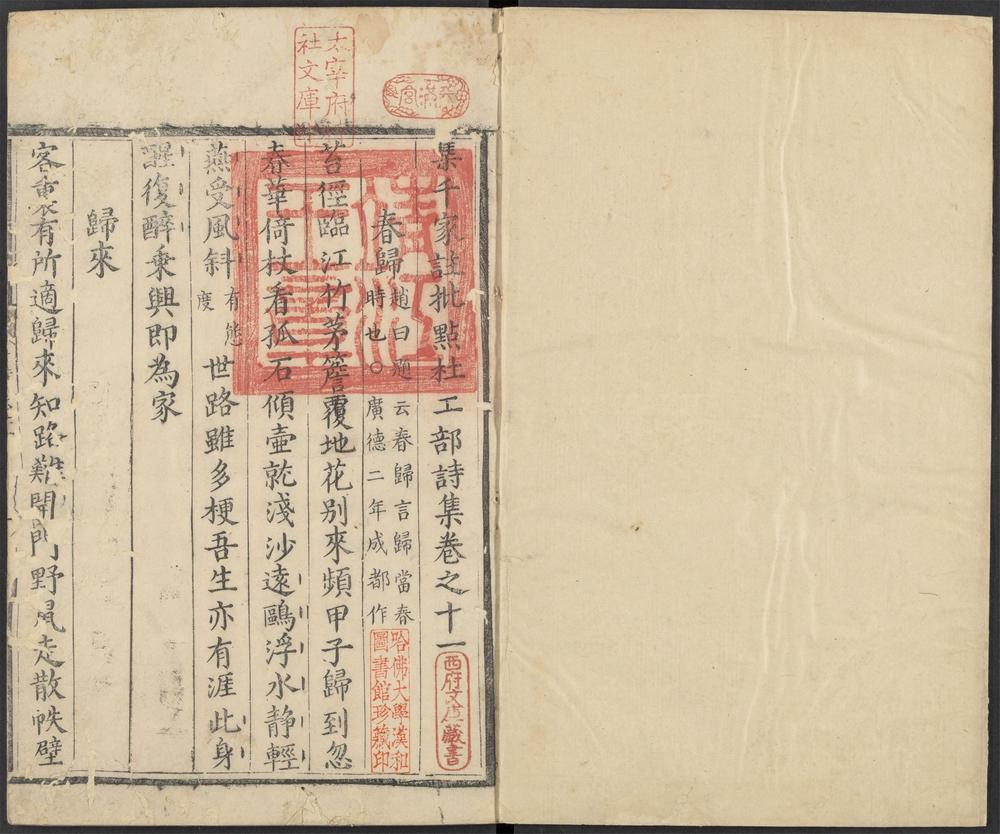 集千家註批點杜工部詩集卷之十一
春歸
趙曰題云春歸言歸當春
時也○廣德二年成都作
苔徑臨江竹茅簷覆地花别來頻甲子歸到忽
春華倚杖看孤石傾壺就淺沙遠鷗浮水靜輕
燕受風斜
有態
度
世路雖多梗吾生亦有涯此身
醒復醉乗興即為家
歸來
客裏有所適歸來知路難開門野鼠走散帙壁
太宰府
社文庫
西府文庫藏書
哈佛大學漢和
圖書館珍藏印